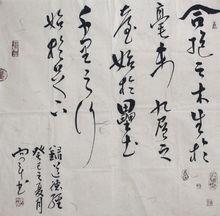 合抱之木生於
毫末九層之
臺始於壘土
千里之行
始於足下
錄道德經
癸巳夏月
書